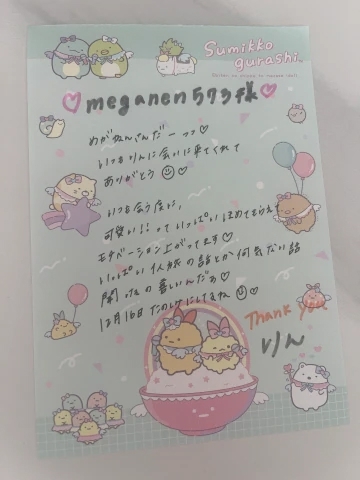 Sumikko
gurashi
meganen573様
めがねんさんだーっっ♡
いつもりんに会いに来てくれて
ありがとう
いつも会う度に、
可愛い!!っていっぱいほめてもらえて
モチベーション上がってます♡
いっぱい の話とか何気ない話
聞けるの嬉しいんだぁ♡
12月16日たのしみにしててね
Thank you
りん